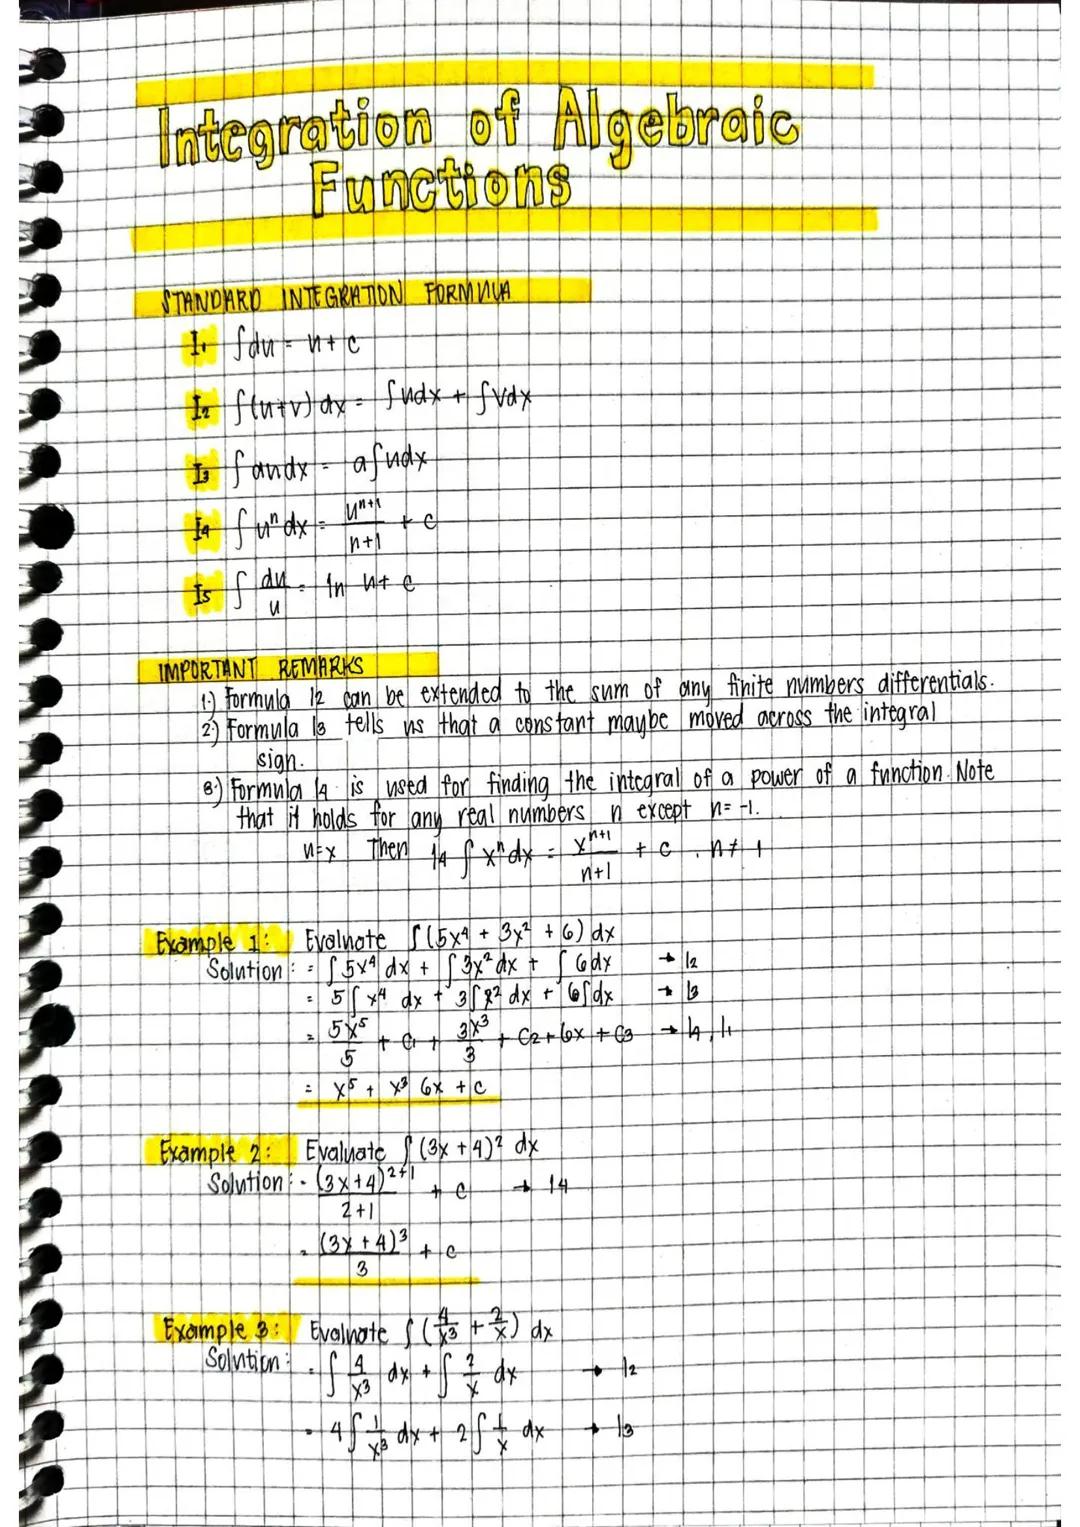 Integration of Algebraic
Functions
STANDARD INTEGRATION FORMULA
I₁ ∫du = u + c
I₂ ∫(u+v) dx = ∫udx + ∫vdx
I₃ ∫audx = a∫udx
I₄ ∫uⁿdx = uⁿ⁺¹/n+1 + c
I₅ ∫du/u = ln u + c
IMPORTANT REMARKS
1.) Formula I2 can be extended to the sum of any finite numbers differentials.
2.) Formula I3 tells us that a constant maybe moved across the integral
sign.
3.) Formula I4 is used for finding the integral of a power of a function. Note
that it holds for any real numbers n except n = -1.
u=x Then I4 ∫xⁿdx = xⁿ⁺¹/n+1 + c , n ≠ 1
Example 1: Evaluate ∫(5x⁴ + 3x² + 6) dx
Solution: = ∫5x⁴ dx + ∫3x² dx + ∫6dx → I2
= 5∫x⁴ dx + 3∫x² dx + 6∫dx → I3
= 5x⁵/5 + C₁ + 3x³/3 + C2 + 6x + C3 → I4, I1
= x⁵ + x³ 6x + c
Example 2: Evaluate ∫(3x + 4)² dx
Solution: = (3x+4)²⁺¹/2+1 + c → I4
= (3x + 4)³/3 + c
Example 3: Evaluate ∫(4/x³ + 2/x) dx
Solution: = ∫4/x³ dx + ∫2/x dx → I2
= 4∫1/x³ dx + 2∫1/x dx → I3